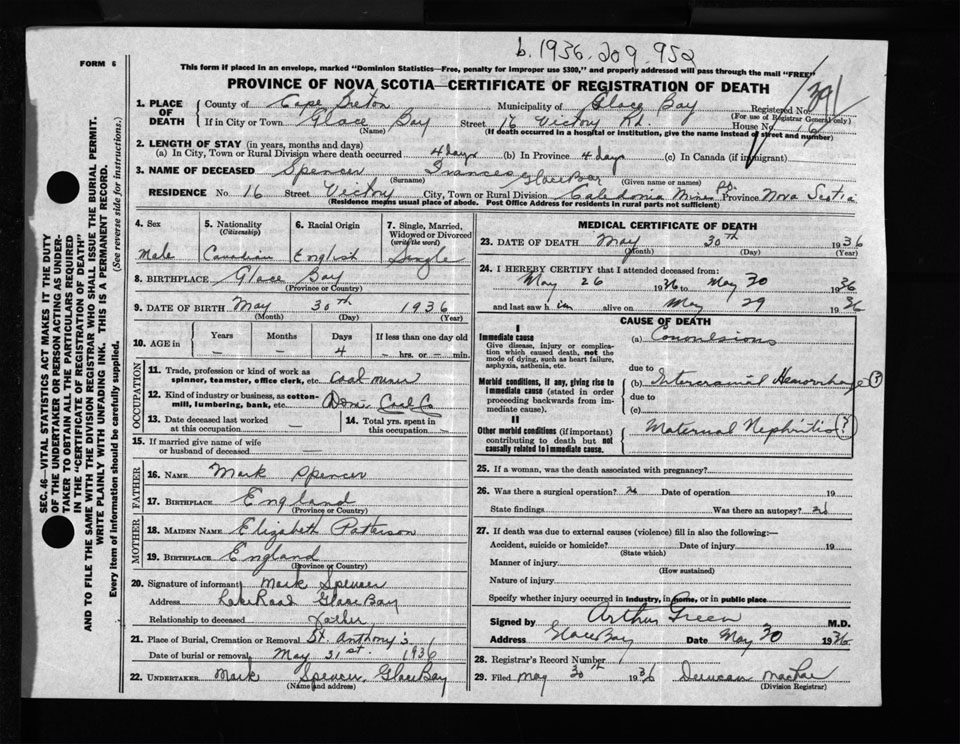 b. 1936. 209. 952
FORM 6
This form if placed in an envelope, marked "Dominion Statistics—Free, penalty for improper use $300," and properly addressed will pass through the mail "FREE"
PROVINCE OF NOVA SCOTIA—CERTIFICATE OF REGISTRATION OF DEATH
1. PLACE OF DEATH County of Cape Breton Municipality of Glace Bay Registered No.
(For use of Registrar General only)
If in City or Town Glace Bay Street 16 Victory Rd. House No. 16
(Name) (If death occurred in a hospital or institution, give the name instead of street and number)
2. LENGTH OF STAY (in years, months and days)
(a) In City, Town or Rural Division where death occurred 4 days (b) In Province 4 days (c) In Canada (if immigrant)
3. NAME OF DECEASED Spencer Frances
(Surname) Glace Bay (Given name or names)
RESIDENCE No. 16 Street Victory City, Town or Rural Division Caledonia Mines Rd. Province Nova Scotia
(Residence means usual place of abode. Post Office Address for residents in rural parts not sufficient)
4. Sex
Male
5. Nationality (Citizenship)
Canadian
6. Racial Origin
English
7. Single, Married, Widowed or Divorced (write the word)
Single
8. BIRTHPLACE Glace Bay
(Province or Country)
9. DATE OF BIRTH May 30th 1936
(Month) (Day) (Year)
10. AGE in Years Months Days If less than one day old
– – 4 – hrs. or – min.
OCCUPATION
11. Trade, profession or kind of work as spinner, teamster, office clerk, etc. Coal miner
12. Kind of industry or business, as cotton-mill, lumbering, bank, etc. Dom. Coal Co
13. Date deceased last worked at this occupation —
14. Total yrs. spent in this occupation —
15. If married give name of wife or husband of deceased —
FATHER
16. NAME Mark Spencer
17. BIRTHPLACE England
(Province or Country)
MOTHER
18. MAIDEN NAME Elizabeth Patterson
19. BIRTHPLACE England
(Province or Country)
20. Signature of informant Mark Spencer
Address Lake Road Glace Bay
Relationship to deceased Father
21. Place of Burial, Cremation or Removal St. Anthony's
Date of burial or removal May 31st. 1936
22. UNDERTAKER Mark Spencer, Glace Bay
(Name and address)
MEDICAL CERTIFICATE OF DEATH
23. DATE OF DEATH May 30th 1936
(Month) (Day) (Year)
24. I HEREBY CERTIFY that I attended deceased from:
May 26 1936 to May 30 1936
and last saw him alive on May 29 1936
CAUSE OF DEATH
I
Immediate cause
Give disease, injury or complication which caused death, not the mode of dying, such as heart failure, asphyxia, asthenia, etc.
(a) Convulsions
due to
Morbid conditions, if any, giving rise to immediate cause (stated in order proceeding backwards from immediate cause).
(b) Intercranial Hemorrhage (?)
due to
(c)
II
Other morbid conditions (if important) contributing to death but not causally related to immediate cause.
Maternal Nephritis (?)
25. If a woman, was the death associated with pregnancy?
26. Was there a surgical operation? no Date of operation 19
State findings Was there an autopsy? no
27. If death was due to external causes (violence) fill in also the following:—
Accident, suicide or homicide? Date of injury 19
(State which)
Manner of injury
(How sustained)
Nature of injury
Specify whether injury occurred in industry, in home, or in public place
Signed by Arthur Green M.D.
Address Glace Bay Date May 30 1936
28. Registrar's Record Number
29. Filed May 30th 1936 Duncan MacRae
(Division Registrar)
SEC. 46—VITAL STATISTICS ACT MAKES IT THE DUTY
OF THE UNDERTAKER OR PERSON ACTING AS UNDERTAKER TO OBTAIN ALL THE PARTICULARS REQUIRED
IN THE "CERTIFICATE OF REGISTRATION OF DEATH"
AND TO FILE THE SAME WITH THE DIVISION REGISTRAR WHO SHALL ISSUE THE BURIAL PERMIT.
WRITE PLAINLY WITH UNFADING INK. THIS IS A PERMANENT RECORD.
Every item of information should be carefully supplied. (See reverse side for instructions.)